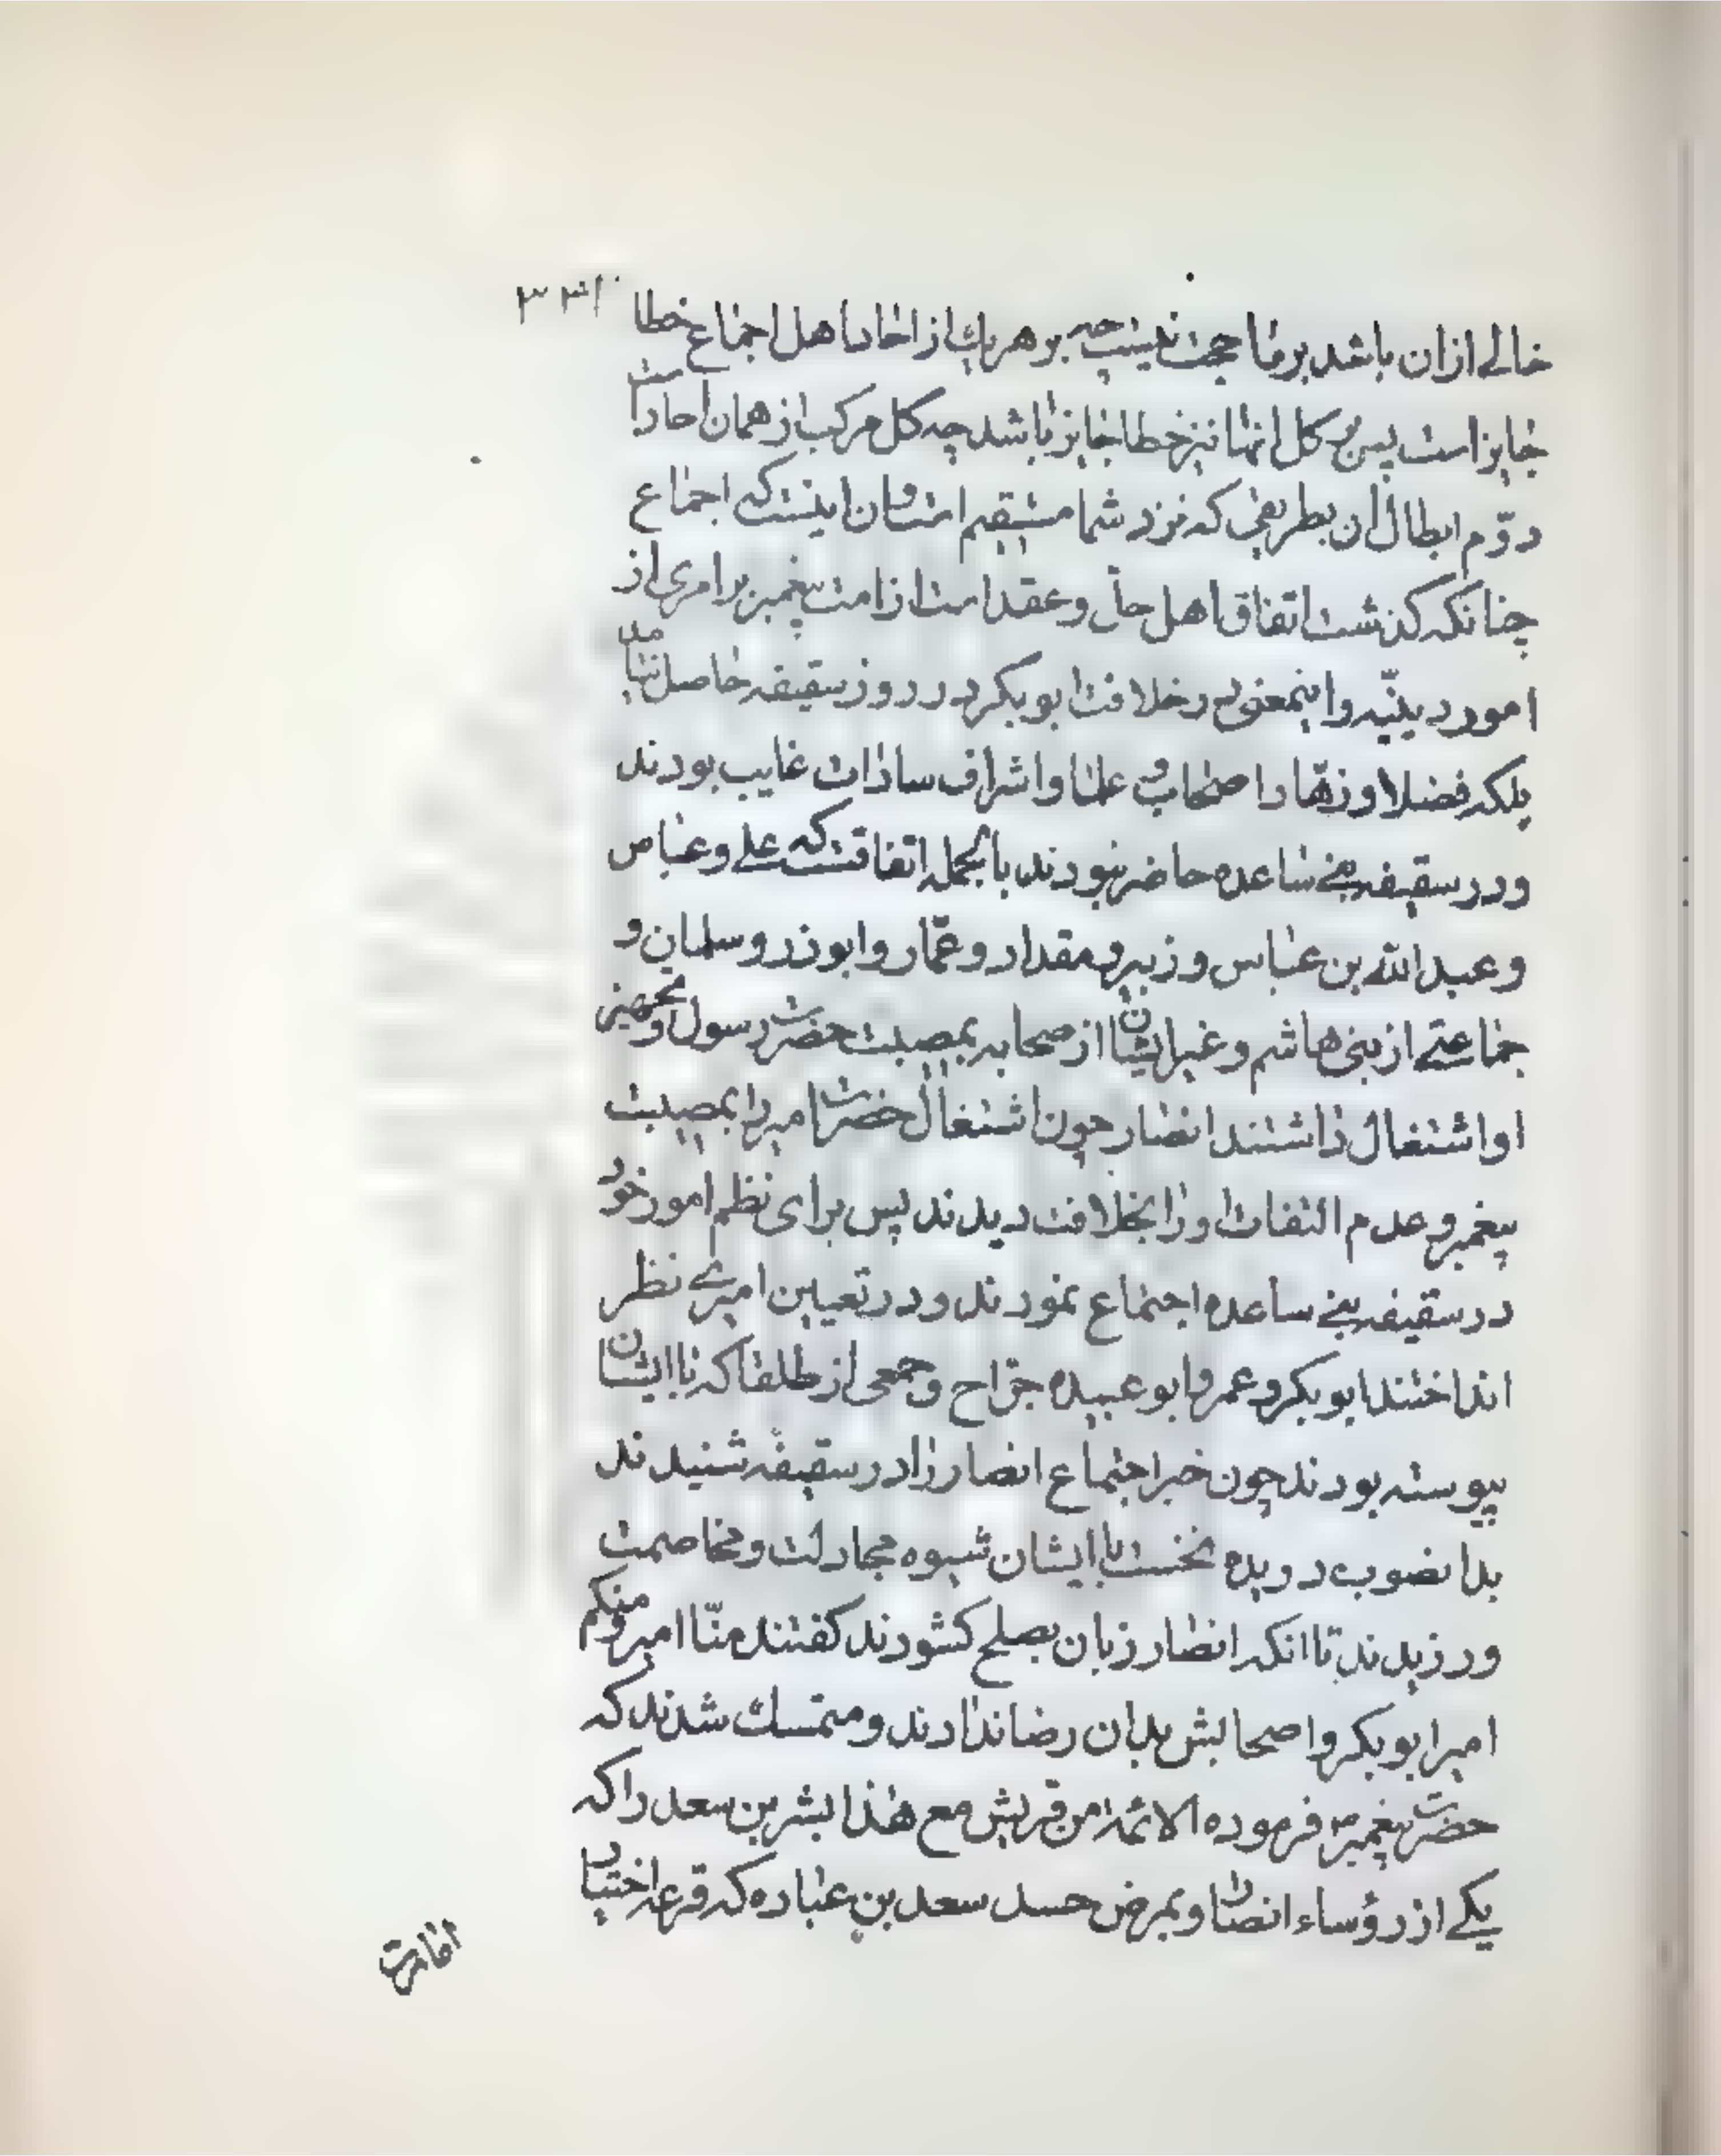 خالی ازان باشد بر ما حجت نیست چه بر هر یک از احاد اهل اجماع خطا ٣٣١
جایز است پس بر کل انها نیز خطا جایز باشد چه کل مرکب از همان احاد است
دوّم ابطال ان بطریقی که نزد شما مستقیم است و ان اینست که اجماع
چنانکه کذشت اتفاق اهل حل و عقد است از امت پیغمبر بر امری از
امور دینیّه و اینمعنی در خلافت ابوبکر در روز سقیفه حاصل نشد
بلکه فضلا و زهّاد اصحاب و علما و اشراف سادات غایب بودند
و در سقیفه بنی ساعده حاضر نبودند بالجمله اتفاقست که علی و عباس
و عبدالله بن عباس و زبیر و مقداد و عمّار و ابوذر و سلمان و
جماعتی از بنی هاشم و غیر ایشان از صحابه بمصیبت حضرت رسول و تجهیز
او اشتغال داشتند انصار چون اشتغال حضرت امیر را بمصیبت
پیغمبر و عدم التفات او را بخلافت دیدند پس برای نظم امور خود
در سقیفه بنی ساعده اجتماع نمودند و در تعیین امیری نظر
انداختند ابوبکر و عمر و ابو عبیده جرّاح و جمعی از طلقا که با ایشان
پیوسته بودند چون خبر اجتماع انصار را در سقیفه شنیدند
بدانصوب دویده نخست با ایشان شیوه مجادلت و مخاصمت
ورزیدند تا انکه انصار زبان بصلح کشودند کفتند منّا امیر و منکم
امیر ابوبکر و اصحابش بدان رضا ندادند و متمسك شدند که
حضرت پیغمبر فرموده الائمة من قریش مع هذا بشر بن سعد را که
یکی از رؤساء انصار و بمرض حسد سعد بن عباده که قرعه اختیار